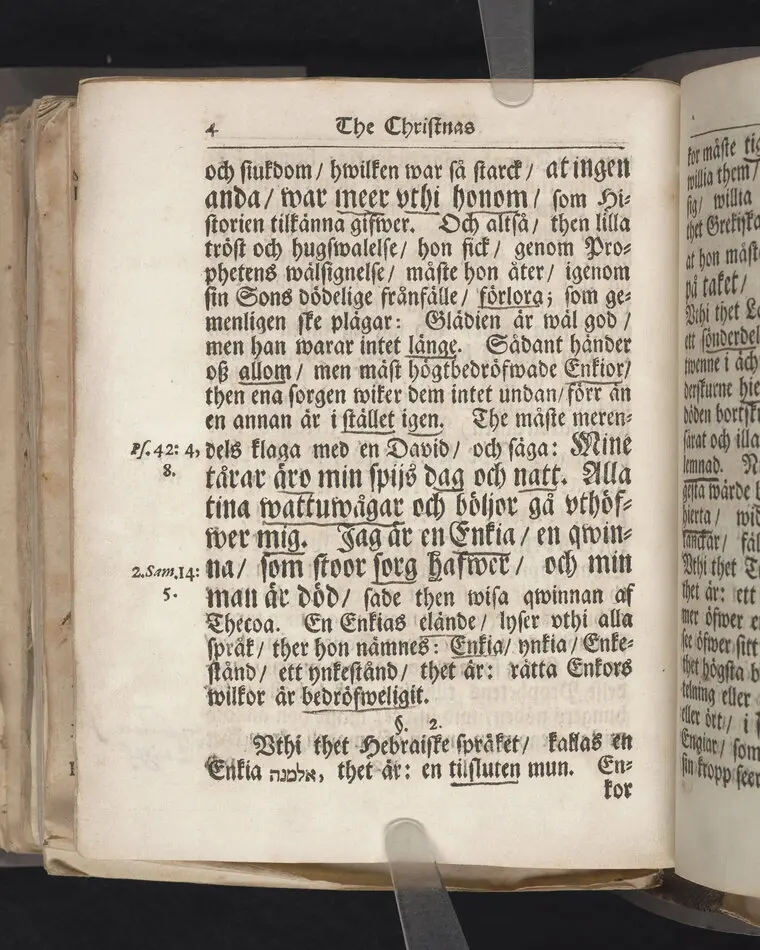 4 The Christnas
och siukdom / hwilken war så starck / at ingen
anda / war meer vthi honom / som Hi-
storien tilkänna gifwer. Och altså / then lilla
tröst och hugswalelse / hon fick / genom Pro-
phetens wälsignelse / måste hon åter / igenom
sin Sons dödelige frånfälle / förlora; som ge-
menligen ske plägar: Glädien är wäl god /
men han warar intet länge. Sådant händer
oß allom / men mäst högtbedröfwade Enkior /
then ena sorgen wiker dem intet undan / förr än
en annan är i stället igen. The måste meren-
Ps. 42: 4, dels klaga med en David / och säga: Mine
8. tårar äro min spijs dag och natt. Alla
tina wattuwågar och böljor gå vthöf-
wer mig. Jag är en Enkia / en qwin-
2. Sam. 14: na / som stoor sorg hafwer / och min
5. man är död / sade then wisa qwinnan af
Thecoa. En Enkias elände / lyser vthi alla
språk / ther hon nämnes: Enkia / ynkia / Enke-
stånd / ett ynkestånd / thet är: rätta Enkors
wilkor är bedröfweligit.
§. 2.
Vthi thet Hebraiske språket / kallas en
Enkia אלמנה, thet är: en tilsluten mun. En-
kor
kor måste tig
willia them /
sig / willia
thet Grekiska
at hon måst
på taket /
Vthi thet La
ett sönderdel
twenne i äch
derskurne hie
döden bortsk
sårat och illa
lemnad. N
gesta wärde b
hierta / wid
tanckar / fäl
Vthi thet T
thet är: ett
mer öfwer e
see öfwer sitt
thet högsta b
telning eller
eller ört / i
Engiar / som
sin kropp seer